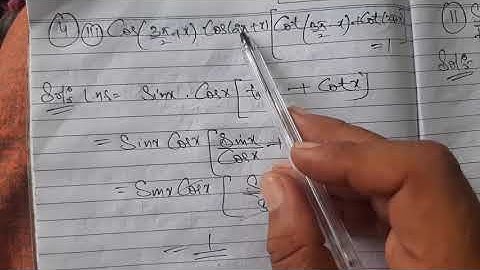 4 (iii) Cos(3π/2+x) Cos(2π+x)[Cot(3π/2-x)+Cot(2π+x)]
= 1
Sol: LHS = Sinx . Cosx [ + Cotx]
= Sinx Cosx [Sinx/Cosx +
= Sinx Cosx [
= 1
11
Sol